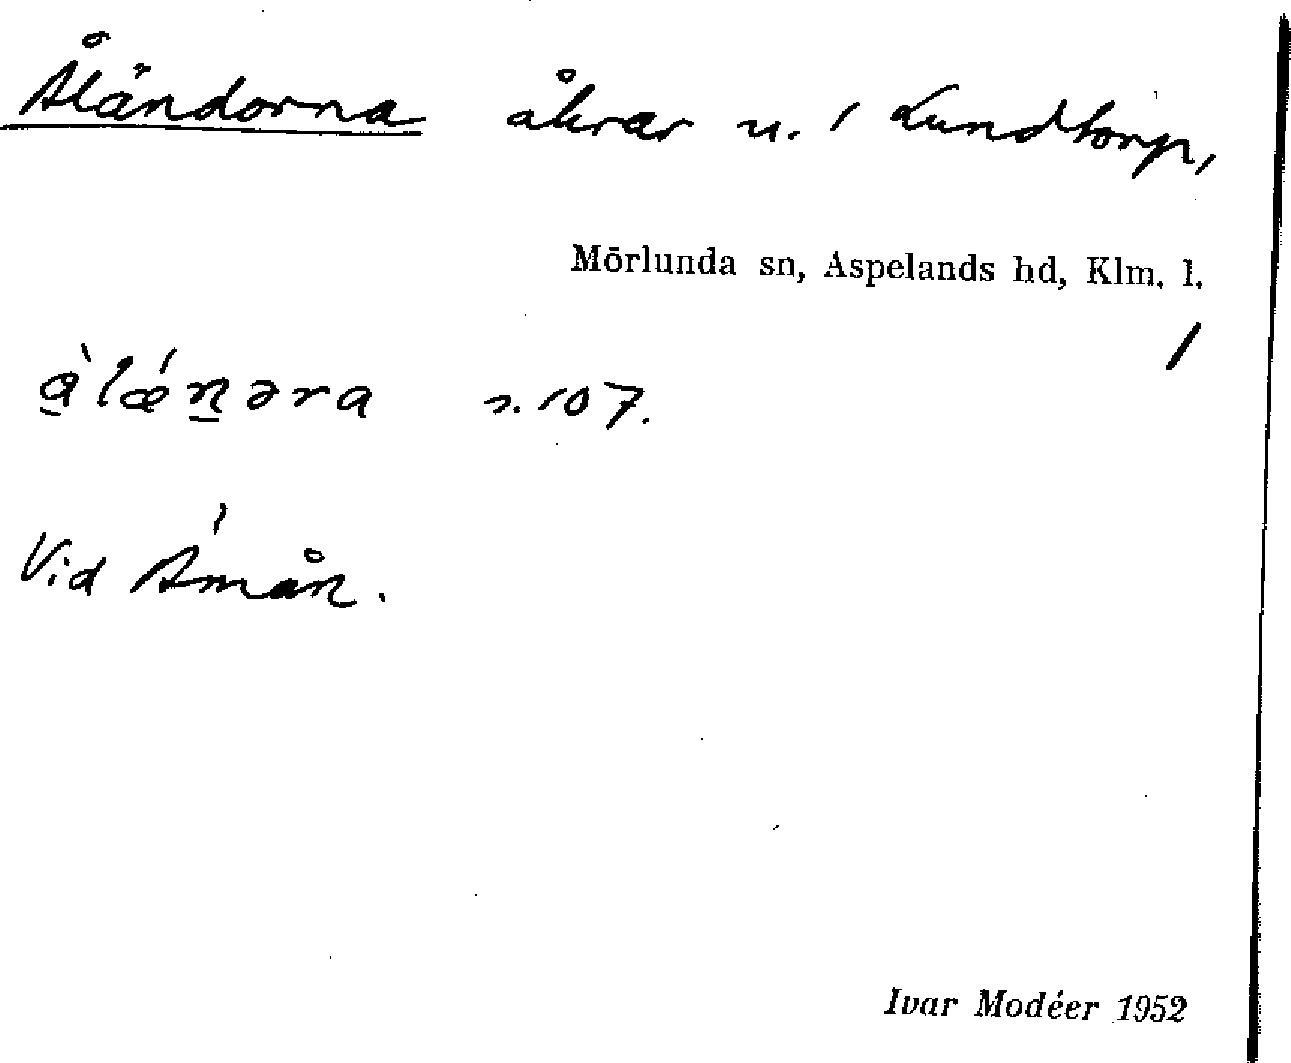 Åländorna åkrar n. 1 Lundtorp,
Mörlunda sn, Aspelands hd, Klm. l.
à̱lǽṉəra s. 107.
Vid Ämån.
Ivar Modéer 1952